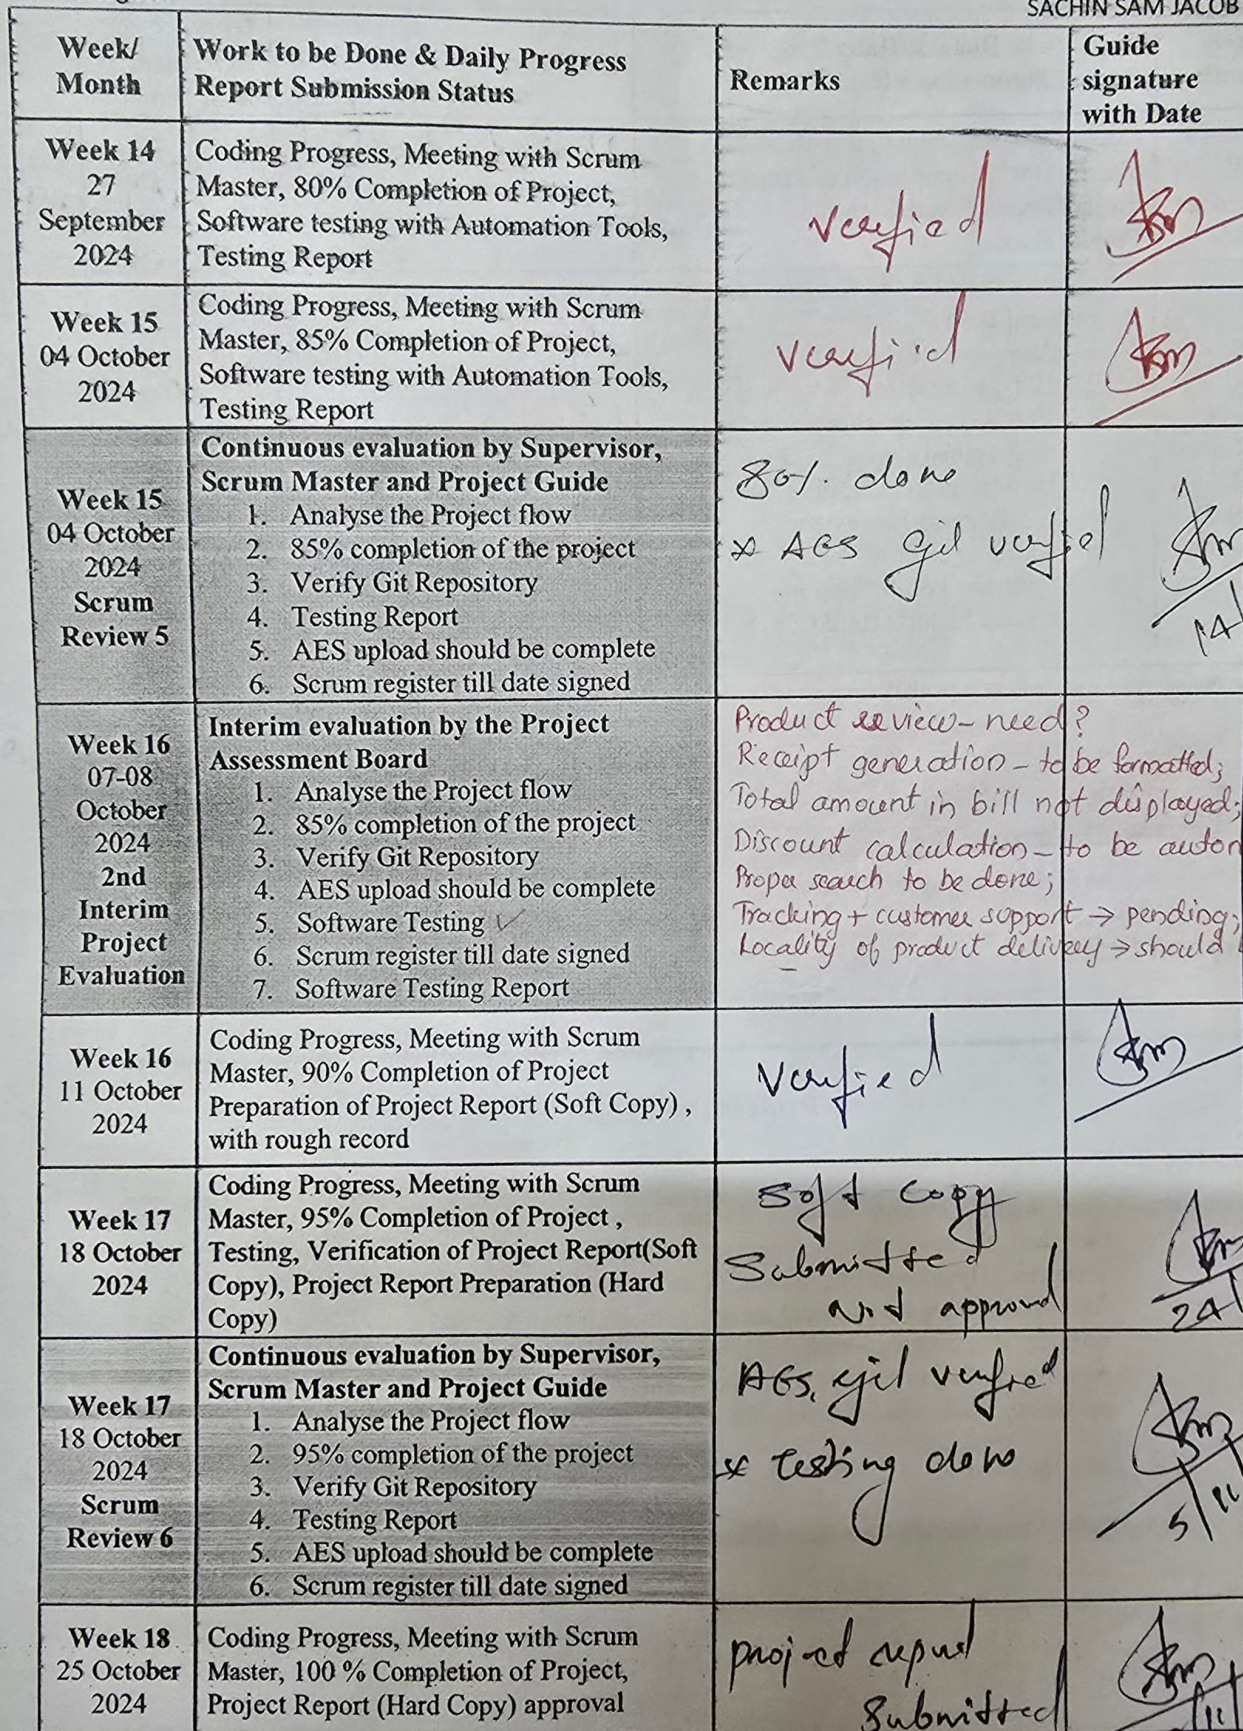 SACHIN SAM JACOB
Week/
Month
Work to be Done & Daily Progress
Report Submission Status
Remarks
Guide
signature
with Date
Week 14
27
September
2024
Coding Progress, Meeting with Scrum
Master, 80% Completion of Project,
Software testing with Automation Tools,
Testing Report
Verified
Week 15
04 October
2024
Coding Progress, Meeting with Scrum
Master, 85% Completion of Project,
Software testing with Automation Tools,
Testing Report
Verified
Week 15
04 October
2024
Scrum
Review 5
Continuous evaluation by Supervisor,
Scrum Master and Project Guide
1. Analyse the Project flow
2. 85% completion of the project
3. Verify Git Repository
4. Testing Report
5. AES upload should be complete
6. Scrum register till date signed
80% done
* AES git verified
14/
Week 16
07-08
October
2024
2nd
Interim
Project
Evaluation
Interim evaluation by the Project
Assessment Board
1. Analyse the Project flow
2. 85% completion of the project
3. Verify Git Repository
4. AES upload should be complete
5. Software Testing ✓
6. Scrum register till date signed
7. Software Testing Report
Product review - need?
Receipt generation - to be formatted;
Total amount in bill not displayed;
Discount calculation - to be autom
Proper search to be done;
Tracking + customer support → pending;
Locality of product delivery → should
Week 16
11 October
2024
Coding Progress, Meeting with Scrum
Master, 90% Completion of Project
Preparation of Project Report (Soft Copy) ,
with rough record
Verified
Week 17
18 October
2024
Coding Progress, Meeting with Scrum
Master, 95% Completion of Project ,
Testing, Verification of Project Report(Soft
Copy), Project Report Preparation (Hard
Copy)
Soft copy
Submitted
not approved
24/
Week 17
18 October
2024
Scrum
Review 6
Continuous evaluation by Supervisor,
Scrum Master and Project Guide
1. Analyse the Project flow
2. 95% completion of the project
3. Verify Git Repository
4. Testing Report
5. AES upload should be complete
6. Scrum register till date signed
AES, git verified
* testing done
5/11
Week 18
25 October
2024
Coding Progress, Meeting with Scrum
Master, 100 % Completion of Project,
Project Report (Hard Copy) approval
project report
Submitted